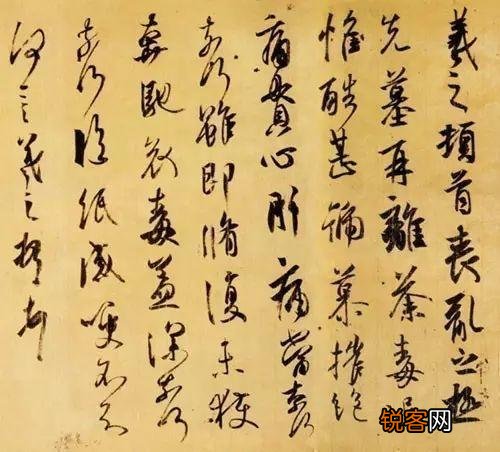 羲之頓首喪亂之極
先墓再離荼毒追
惟酷甚號慕摧絶
痛貫心肝痛當奈何
奈何雖即脩復未獲
奔馳哀毒益深奈何
奈何臨紙感哽不知
何言羲之頓首
锐客网